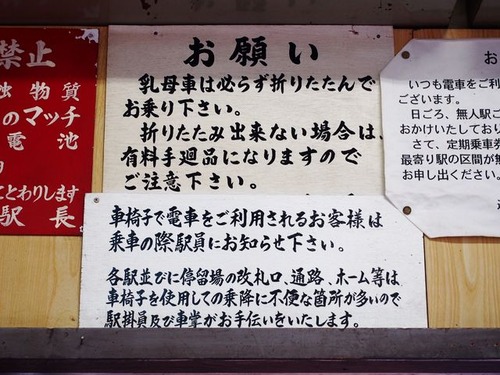 禁止
物質
のマッチ
電池
ことわりします
駅長
お願い
乳母車は必らず折りたたんで
お乗り下さい。
折りたたみ出来ない場合は、
有料手廻品になりますので
ご注意下さい。
車椅子で電車をご利用されるお客様は
乗車の際駅員にお知らせ下さい。
各駅並びに停留場の改札口、通路、ホーム等は
車椅子を使用しての乗降に不便な箇所が多いので
駅掛員及び車掌がお手伝いをいたします。
お
いつも電車をご利
ございます。
日ごろ、無人駅ご
おかけいたしており
さて、定期乗車券
最寄り駅の区間が無
お申し出ください。